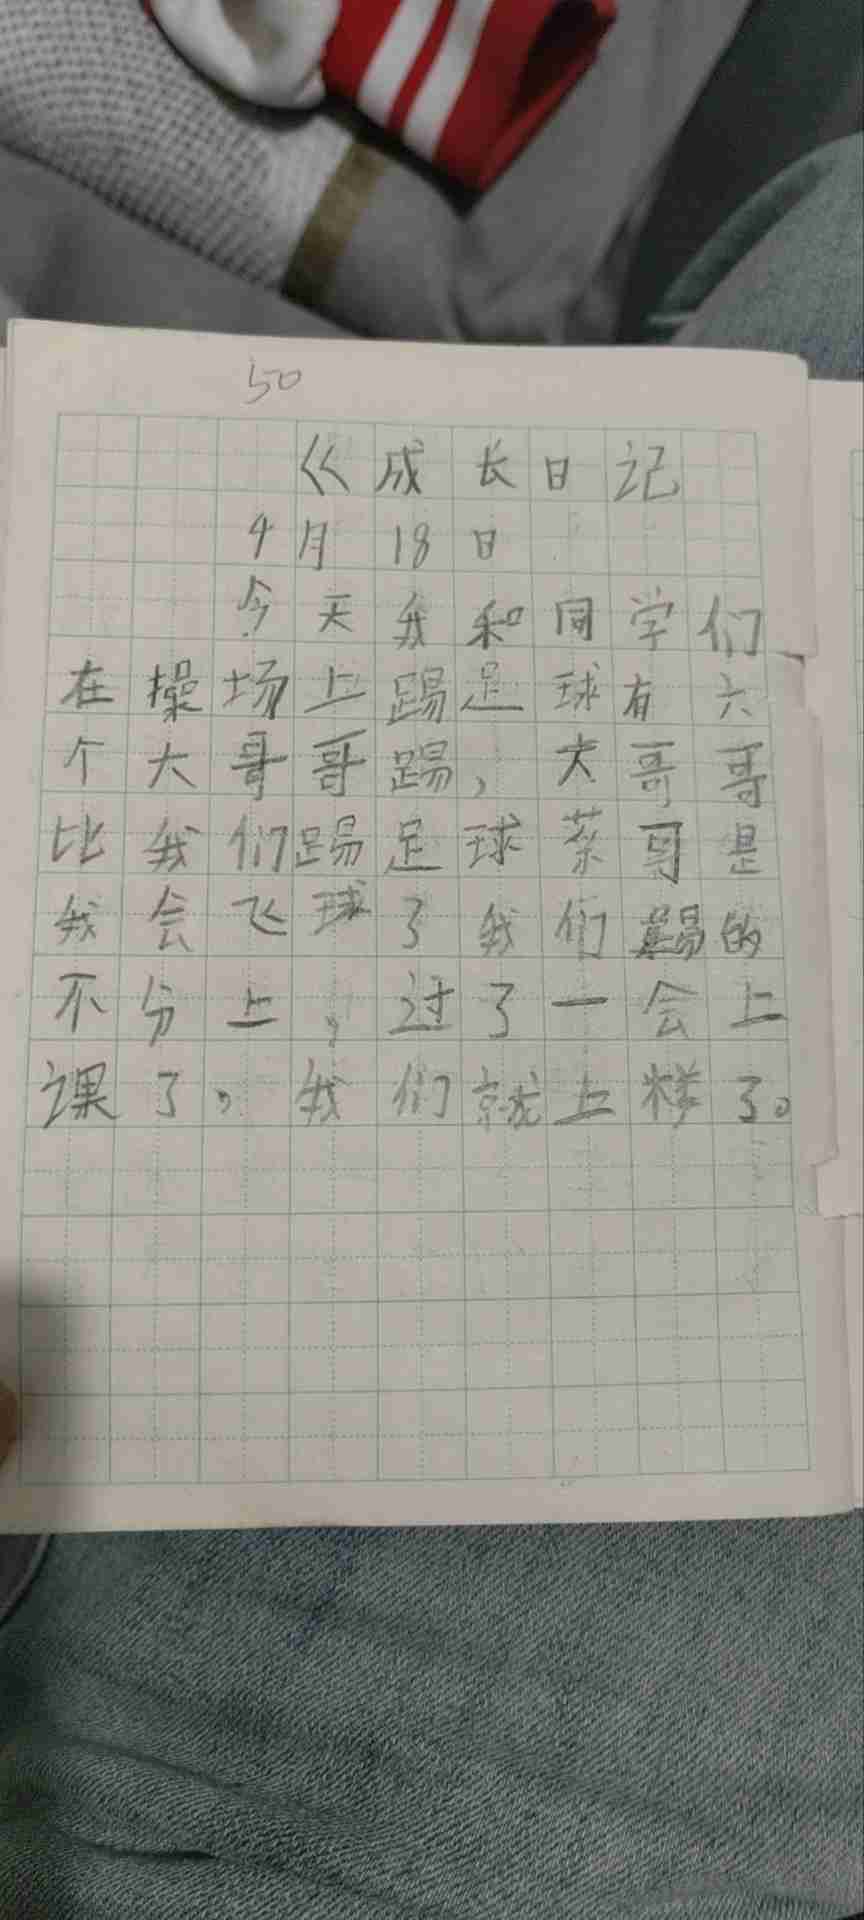 50
《成长日记
9月18日
今天我和同学们
在操场上踢足球有六
个大哥哥踢，大哥哥
比我们踢足球菜哥是
我会飞球了我们踢的
不分上，过了一会上
课了，我们就上楼了。